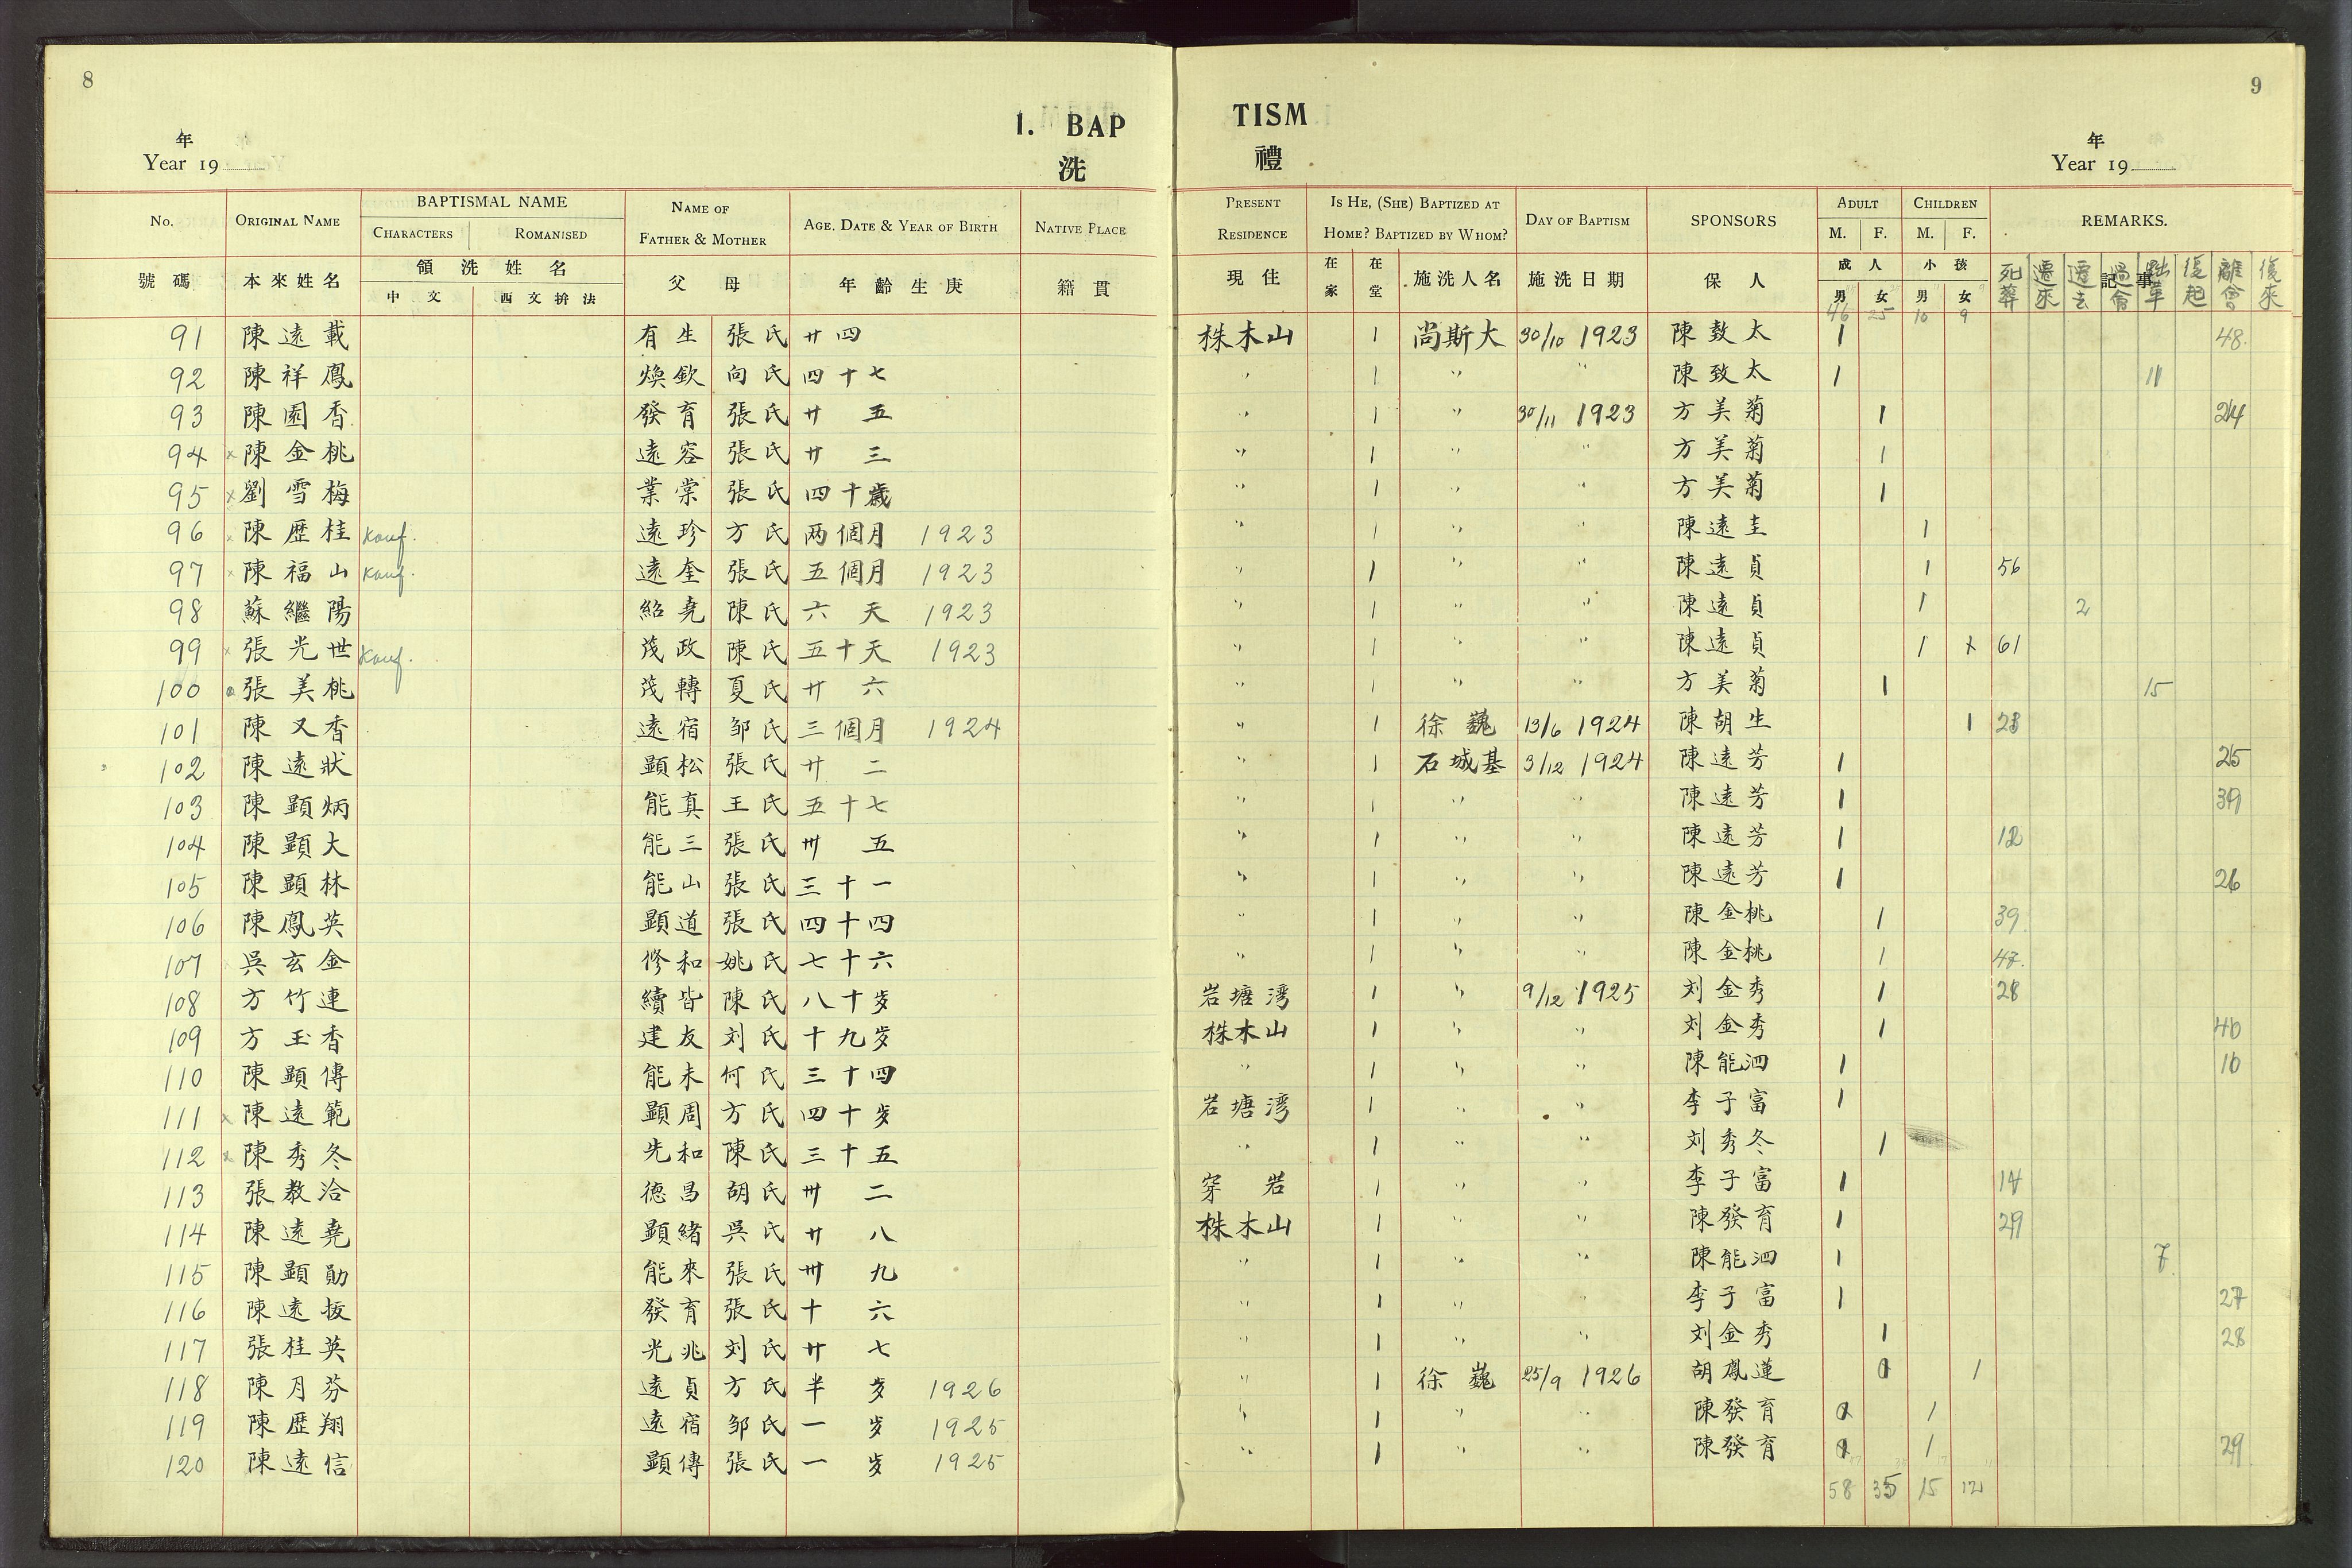 8
9
1. BAP TISM
洗 禮
年
Year 19
年
Year 19
No. ORIGINAL NAME BAPTISMAL NAME NAME OF FATHER & MOTHER AGE. DATE & YEAR OF BIRTH NATIVE PLACE PRESENT RESIDENCE IS HE, (SHE) BAPTIZED AT HOME? BAPTIZED BY WHOM? DAY OF BAPTISM SPONSORS ADULT CHILDREN REMARKS.
CHARACTERS ROMANISED M. F. M. F.
號碼 本來姓名 領洗姓名 父母 年齡生庚 籍貫 現住 在家 在堂 施洗人名 施洗日期 保人 成人 小孩 記事
中文 西文拚法 男 女 男 女 死葬 遷來 遷去 過會 黜革 復起 離會 復來
46 25 10 9
91 陳遠載 有生 張氏 廿四 株木山 1 尚斯大 30/10 1923 陳致太 1 48.
92 陳祥鳳 煥欽 向氏 四十七 " 1 " " 陳致太 1 11
93 陳園香 發育 張氏 廿五 " 1 " 30/11 1923 方美菊 1 24
94 x 陳金桃 遠容 張氏 廿三 " 1 " " 方美菊 1
95 x 劉雪梅 業棠 張氏 四十歲 " 1 " " 方美菊 1
96 x 陳歷桂 Konf. 遠珍 方氏 两個月 1923 " 1 " " 陳遠圭 1
97 x 陳福山 Konf. 遠奎 張氏 五個月 1923 " 1 " " 陳遠貞 1 56
98 蘇繼陽 紹堯 陳氏 六天 1923 " 1 " " 陳遠貞 1 2
99 x 張光世 Konf. 茂政 陳氏 五十天 1923 " 1 " " 陳遠貞 1 x 61
100 張美桃 茂轉 夏氏 廿六 " 1 " " 方美菊 1 15
101 陳又香 遠宿 邹氏 三個月 1924 " 1 徐巍 13/6 1924 陳胡生 1 23
102 陳遠狀 顕松 張氏 廿二 " 1 石城基 3/12 1924 陳遠芳 1 25
103 陳顕炳 能真 王氏 五十七 " 1 " " 陳遠芳 1 39
104 陳顕大 能三 張氏 卅五 " 1 " " 陳遠芳 1 12
105 陳顕林 能山 張氏 三十一 " 1 " " 陳遠芳 1 26
106 陳鳳英 顕道 張氏 四十四 " 1 " " 陳金桃 1 39.
107 吳玄金 修和 姚氏 七十六 " 1 " " 陳金桃 1 47.
108 方竹連 續皆 陳氏 八十岁 岩塘湾 1 " 9/12 1925 刘金秀 1 28
109 方玉香 建友 刘氏 十九岁 株木山 1 " " 刘金秀 1 40
110 陳顕傳 能未 何氏 三十四 " 1 " " 陳能泗 1 10
111 x 陳遠範 顕周 方氏 四十岁 岩塘湾 1 " " 李子富 1
112 x 陳秀冬 先和 陳氏 三十五 " 1 " " 刘秀冬 1
113 張教洽 德昌 胡氏 卅二 穿岩 1 " " 李子富 1 14
114 陳遠堯 顕緒 吳氏 廿八 株木山 1 " " 陳發育 1 29
115 陳顕勛 能來 張氏 卅九 " 1 " " 陳能泗 1 7.
116 陳遠扳 發育 張氏 十六 " 1 " " 李子富 1 27
117 張桂英 光兆 刘氏 廿七 " 1 " " 刘金秀 1 28
118 陳月芬 遠貞 方氏 半岁 1926 " 1 徐巍 25/9 1926 胡鳳蓮 1
119 陳歷翔 遠宿 邹氏 一岁 1925 " 1 " " 陳發育 1
120 陳遠信 顕傳 張氏 一岁 1925 " 1 " " 陳發育 1 29
58 35 15 12